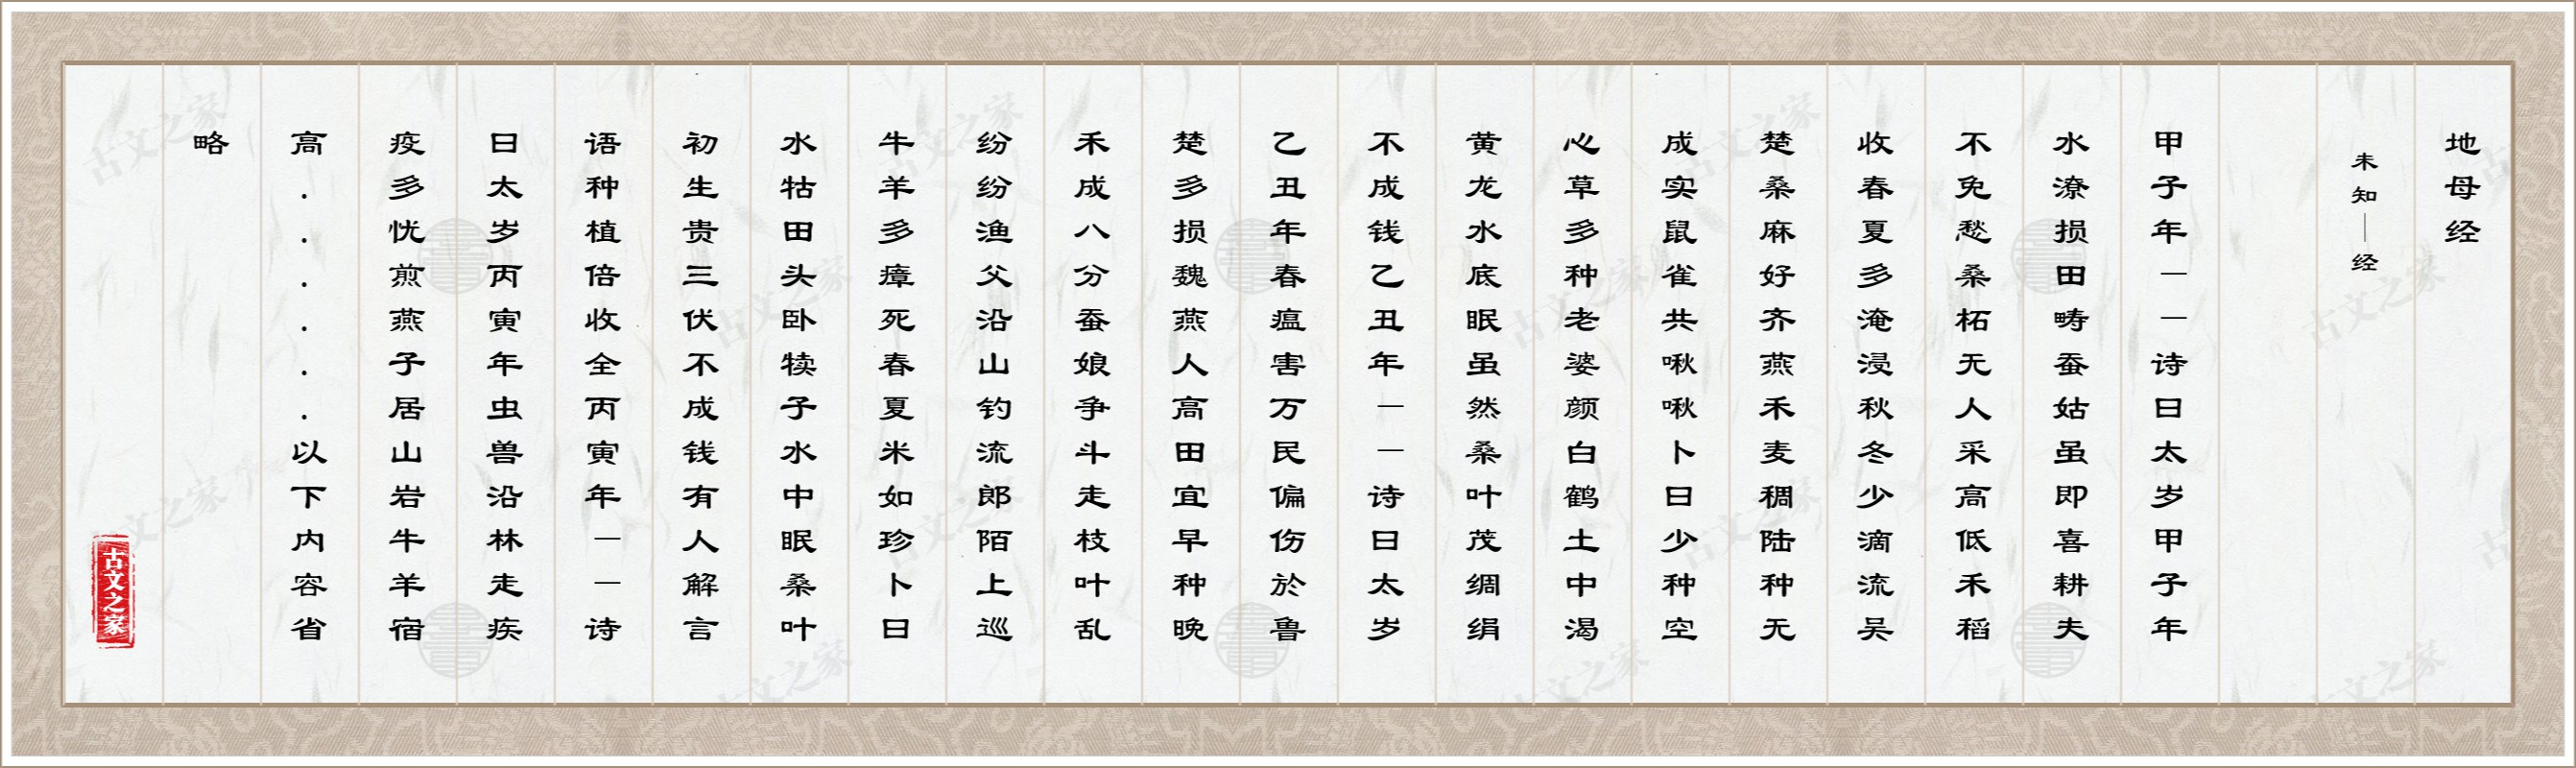 地母经
未知—经
甲子年——诗曰太岁甲子年
水潦损田畴蚕姑虽即喜耕夫
不免愁桑柘无人采高低禾稻
收春夏多淹浸秋冬少滴流吴
楚桑麻好齐燕禾麦稠陆种无
成实鼠雀共啾啾卜曰少种空
心草多种老婆颜白鹤土中渴
黄龙水底眠虽然桑叶茂绸绢
不成钱乙丑年——诗曰太岁
乙丑年春瘟害万民偏伤於鲁
楚多损魏燕人高田宜早种晚
禾成八分蚕娘争斗走枝叶乱
纷纷渔父沿山钓流郎陌上巡
牛羊多瘴死春夏米如珍卜曰
水牯田头卧犊子水中眠桑叶
初生贵三伏不成钱有人解言
语种植倍收全丙寅年——诗
曰太岁丙寅年虫兽沿林走疾
疫多忧煎燕子居山岩牛羊宿
高......以下内容省
略
古文之家